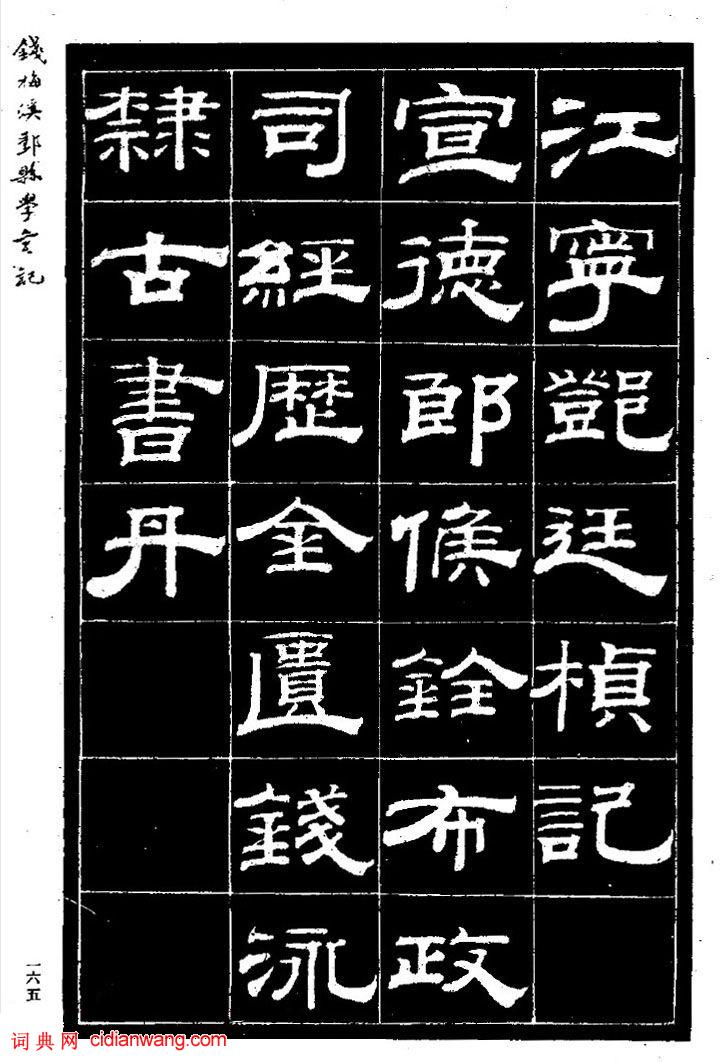 江寧鄧廷楨記
宣德郎候銓布政
司經歴金匱錢泳
隸古書丹
錢梅溪鄞縣學記
一六五
词典网 cidianwang.com